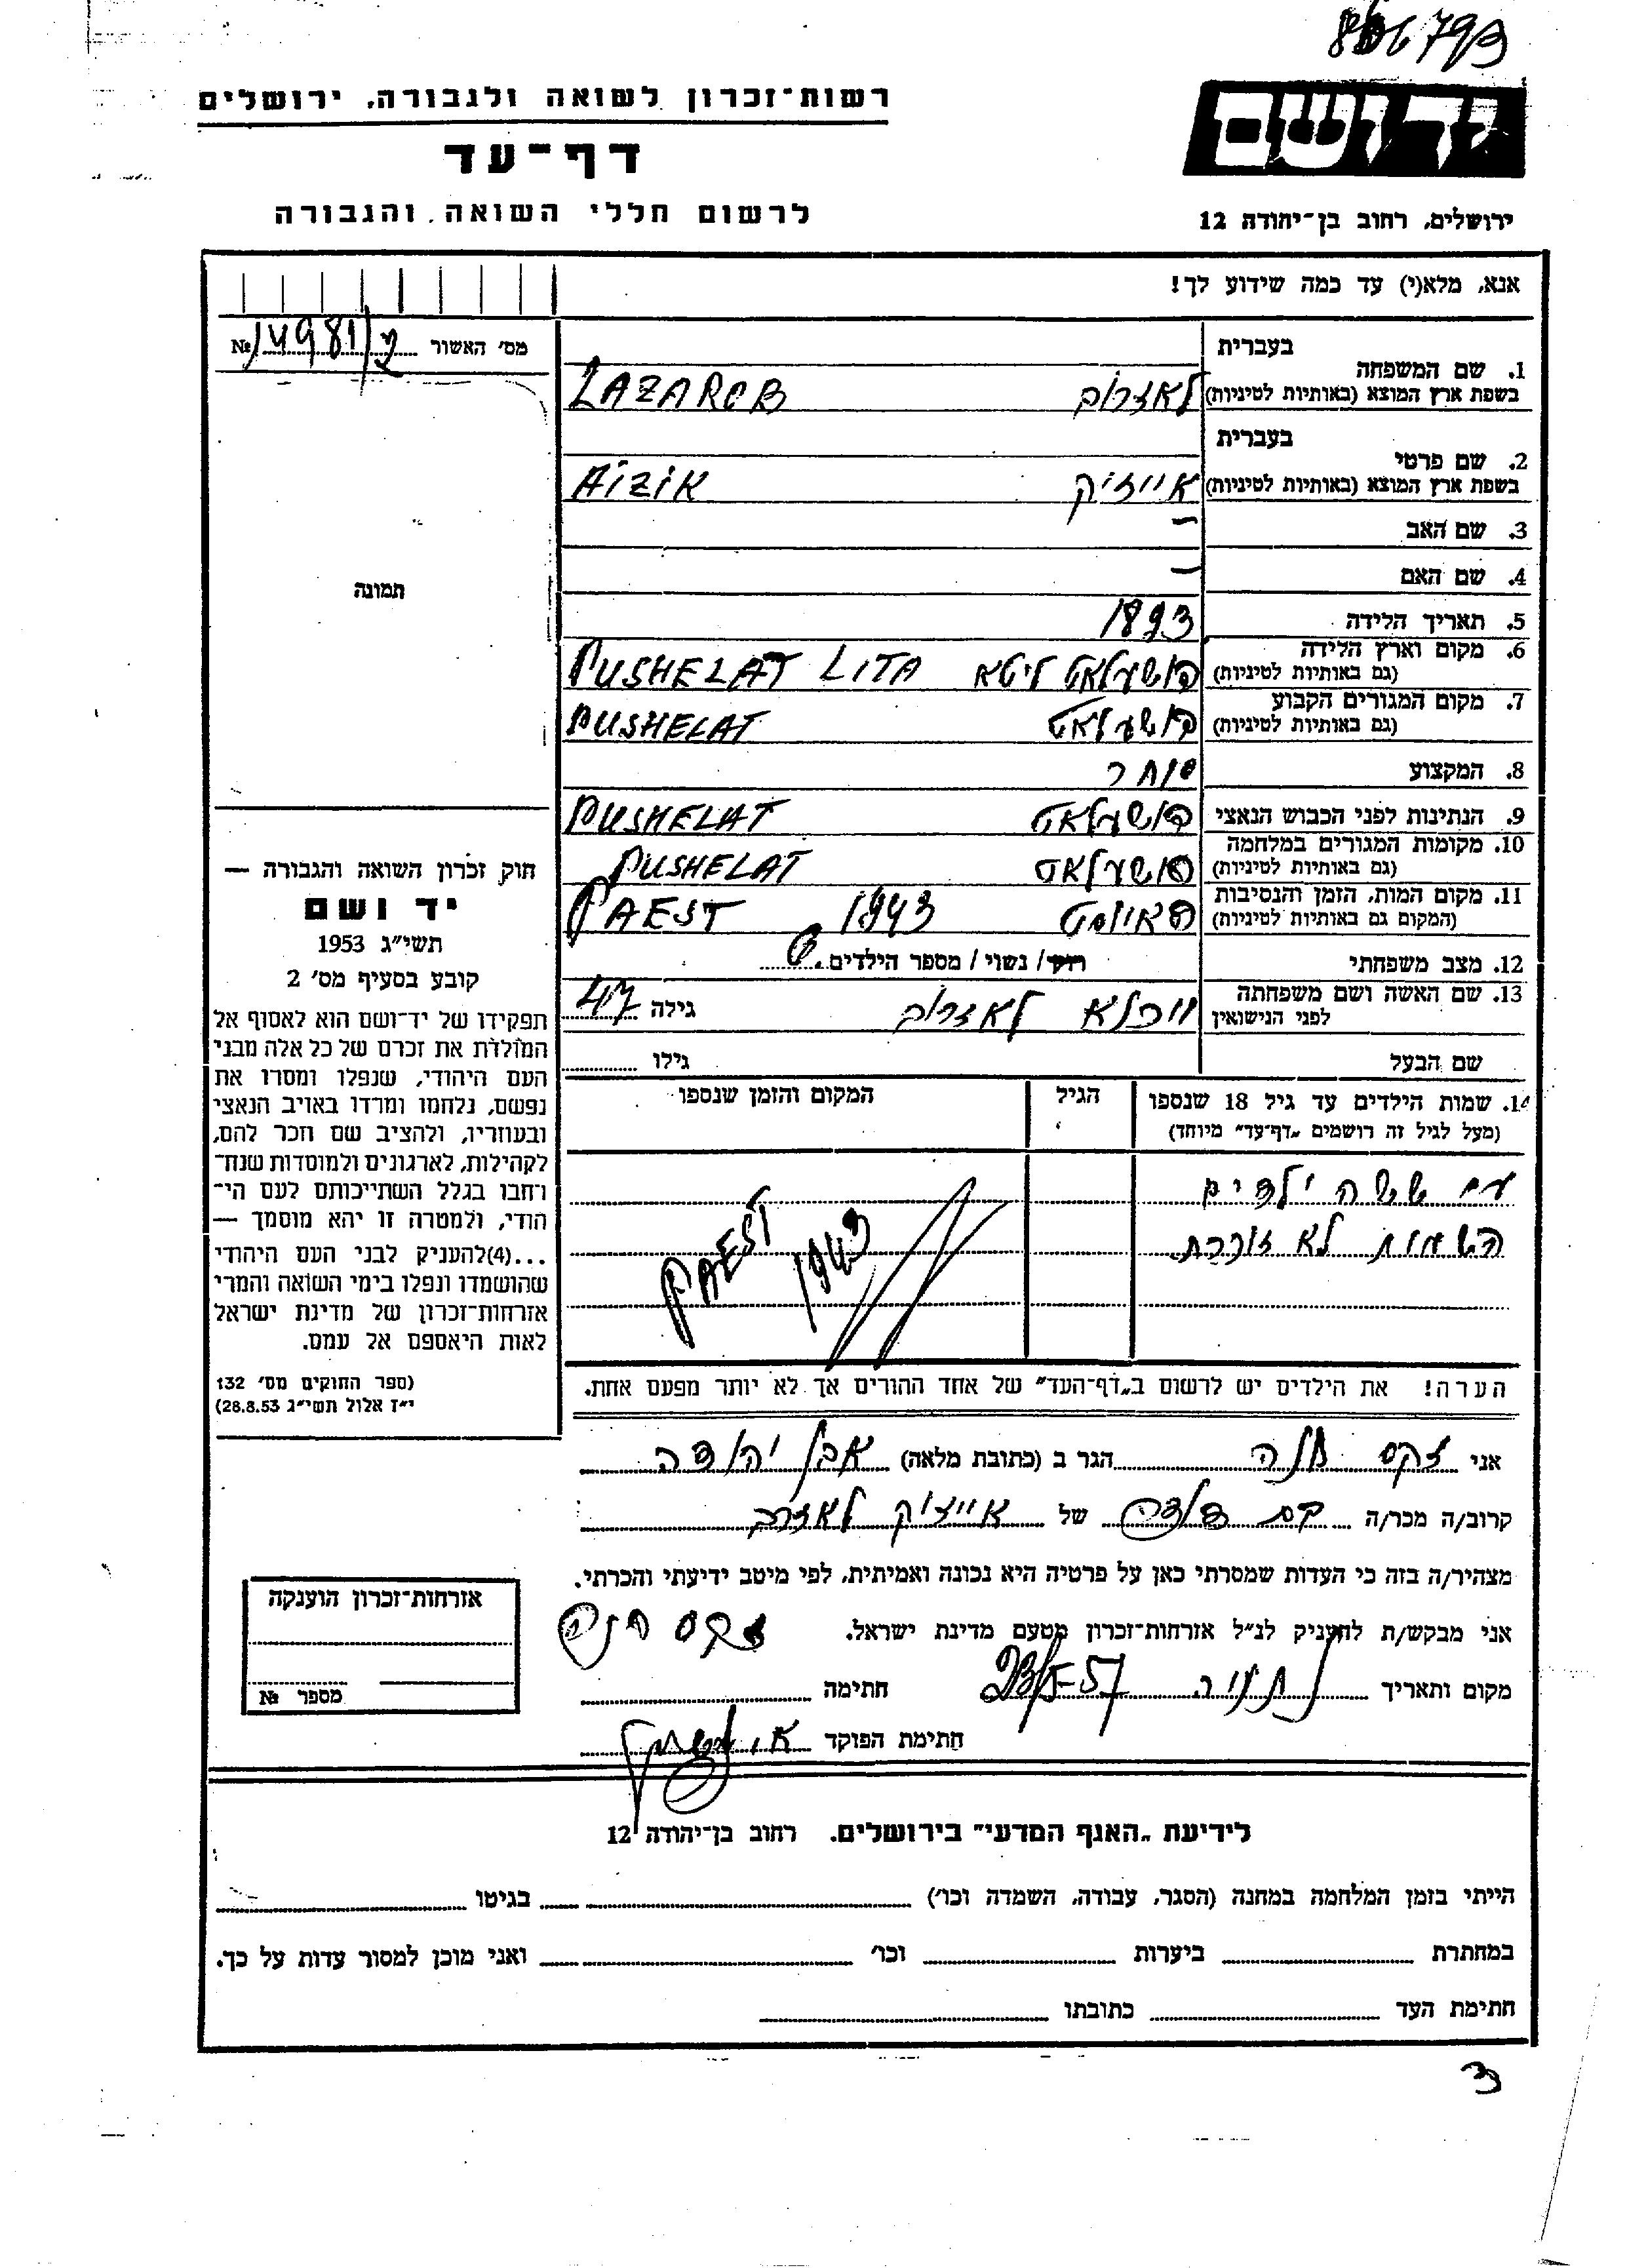 רשות-זכרון לשואה ולגבורה, ירושלים
דף-עד
לרשום חללי השואה והגבורה
ידושם
ירושלים, רחוב בן-יהודה 12
אנא, מלא(י) עד כמה שידוע לך!
מס׳ האשור № 14981/
תמונה
בעברית
1. שם המשפחה
בשפת ארץ המוצא (באותיות לטיניות) לאזרוב LAZAROB
בעברית
2. שם פרטי
בשפת ארץ המוצא (באותיות לטיניות) אייזיק AIZIK
3. שם האב –
4. שם האם –
5. תאריך הלידה 1893
6. מקום וארץ הלידה
(גם באותיות לטיניות) פושעלאט ליטא PUSHELAT LITA
7. מקום המגורים הקבוע
(גם באותיות לטיניות) פושעלאט PUSHELAT
8. המקצוע סוחר
9. הנתינות לפני הכבוש הנאצי פושעלאט PUSHELAT
10. מקומות המגורים במלחמה
(גם באותיות לטיניות) פושעלאט PUSHELAT
11. מקום המות, הזמן והנסיבות
(המקום גם באותיות לטיניות) 1943 PAEST
12. מצב משפחתי רוק/ נשוי / מספר הילדים 6
13. שם האשה ושם משפחתה
לפני הנישואין לאזרוב גילה 47
שם הבעל גילו
14. שמות הילדים עד גיל 18 שנספו
(מעל לגיל זה רושמים „דף-עד״ מיוחד)
הגיל
המקום והזמן שנספו
עם ששה ילדים
השמות לא זוכרת
PAEST 1943
הערה! את הילדים יש לרשום ב„דף-העד״ של אחד ההורים אך לא יותר מפעם אחת.
חוק זכרון השואה והגבורה —
יד ושם
תשי״ג 1953
קובע בסעיף מס׳ 2
תפקידו של יד-ושם הוא לאסוף אל
המולדת את זכרם של כל אלה מבני
העם היהודי, שנפלו ומסרו את
נפשם, נלחמו ומרדו באויב הנאצי
ובעוזריו, ולהציב שם וזכר להם,
לקהילות, לארגונים ולמוסדות שנח־
רחבו בגלל השתייכותם לעם הי־
הודי, ולמטרה זו יהא מוסמך —
...(4)להעניק לבני העם היהודי
שהושמדו ונפלו בימי השואה והמרי
אזרחות-זכרון של מדינת ישראל
לאות היאספם אל עמם.
(ספר החוקים מס׳ 132
י״ז אלול תשי״ג 28.8.53)
אני זקס חנה הגר ב (כתובת מלאה) אבן יהודה
קרוב/ה מכר/ה בת דודה של אייזיק לאזרוב
מצהיר/ה בזה כי העדות שמסרתי כאן על פרטיה היא נכונה ואמיתית, לפי מיטב ידיעתי והכרתי.
אני מבקש/ת להעניק לנ״ל אזרחות-זכרון מטעם מדינת ישראל.
זקס חנה
מקום ותאריך נתניה 23/5-57 חתימה
חתימת הפוקד
אזרחות-זכרון הוענקה
מספר №
לידיעת „האגף המדעי״ בירושלים. רחוב בן-יהודה 12
הייתי בזמן המלחמה במחנה (הסגר, עבודה, השמדה וכו׳) בגיטו
במחתרת ביערות וכו׳ ואני מוכן למסור עדות על כך.
חתימת העד כתובתו
3